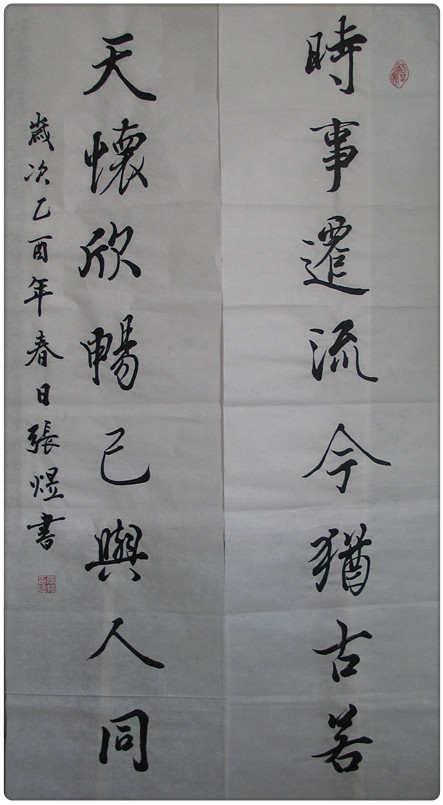 時事遷流今猶古若
天懷欣暢己與人同
歲次乙酉年春日張煜書